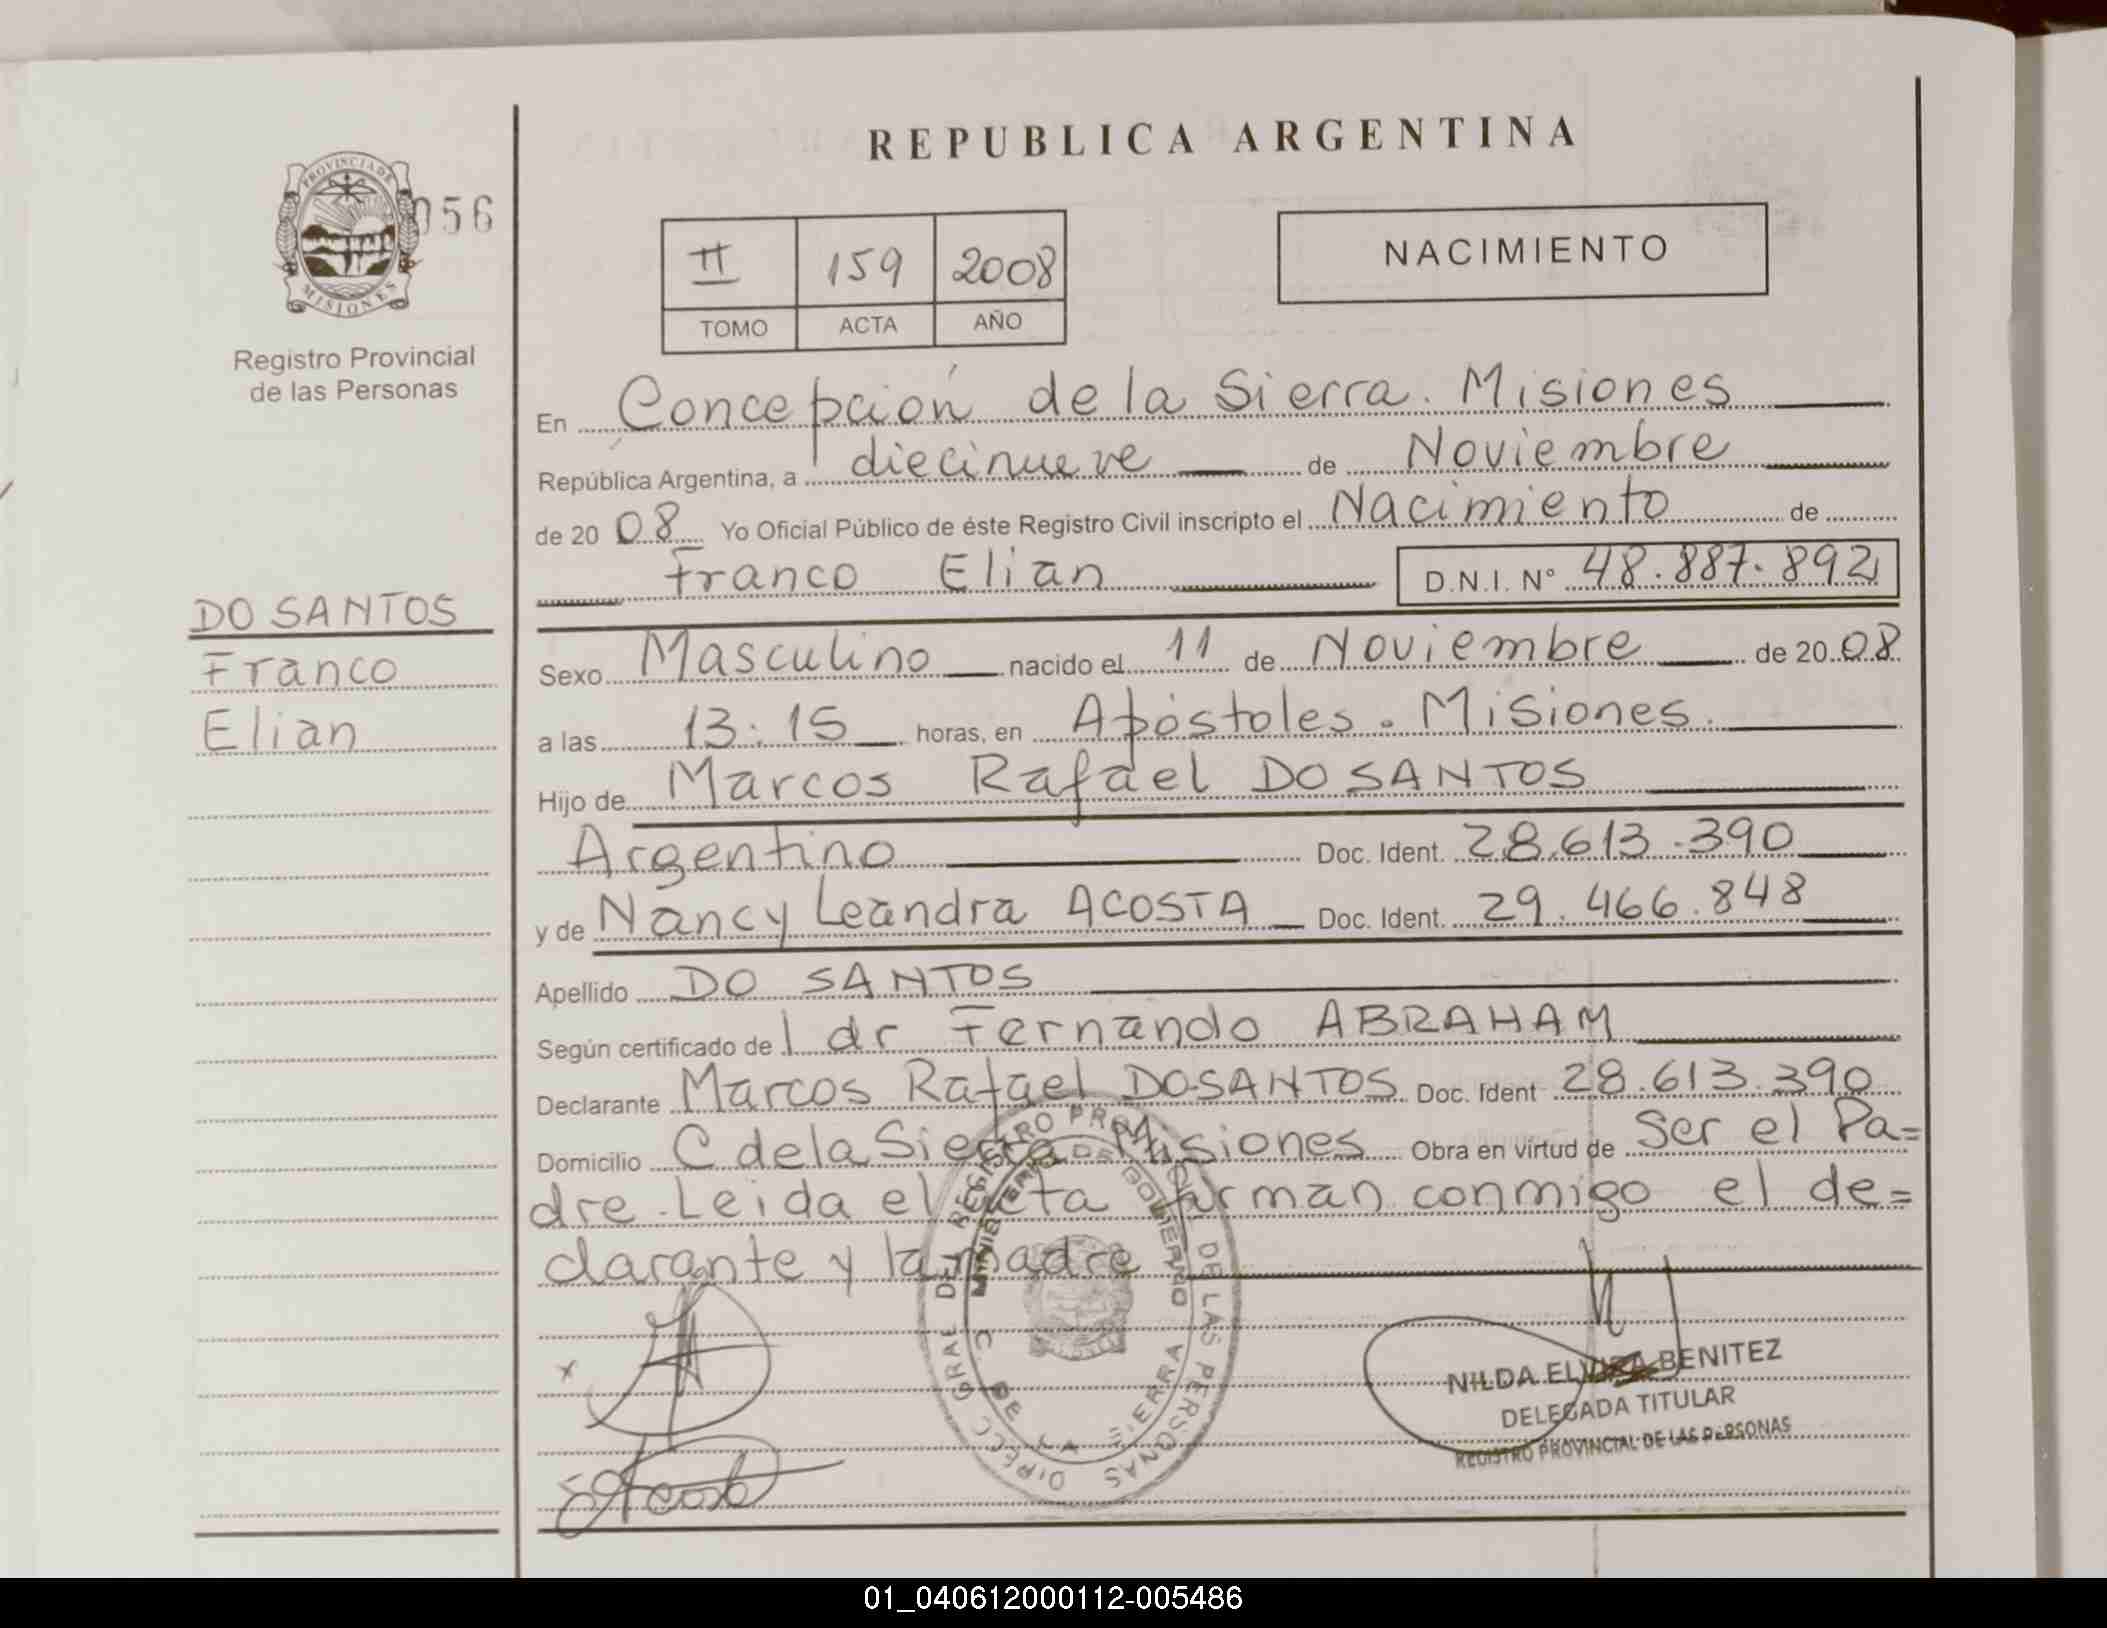 REPUBLICA ARGENTINA
PROVINCIA DE
MISIONES
056
Registro Provincial
de las Personas
II 159 2008
TOMO ACTA AÑO
NACIMIENTO
En Concepción de la Sierra. Misiones
República Argentina, a diecinueve de Noviembre
de 2008 Yo Oficial Público de éste Registro Civil inscripto el Nacimiento de
Franco Elian D.N.I. Nº 48.887.892
DO SANTOS
Franco
Elian
Sexo Masculino nacido el 11 de Noviembre de 2008
a las 13:15 horas, en Apóstoles. Misiones.
Hijo de Marcos Rafael DO SANTOS
Argentino Doc. Ident. 28.613.390
y de Nancy Leandra ACOSTA Doc. Ident. 29.466.848
Apellido DO SANTOS
Según certificado del dr Fernando ABRAHAM
Declarante Marcos Rafael DO SANTOS Doc. Ident 28.613.390
Domicilio C de la Sierra Misiones Obra en virtud de Ser el Pa=
dre. Leida el acta firman conmigo el de=
clarante y la madre
DIRECC GRAL DEL REGISTRO PROVINCIAL DE LAS PERSONAS
MINISTERIO DE GOBIERNO
C. DE LA SIERRA
Acosta
NILDA ELVIRA BENITEZ
DELEGADA TITULAR
REGISTRO PROVINCIAL DE LAS PERSONAS
01_040612000112-005486